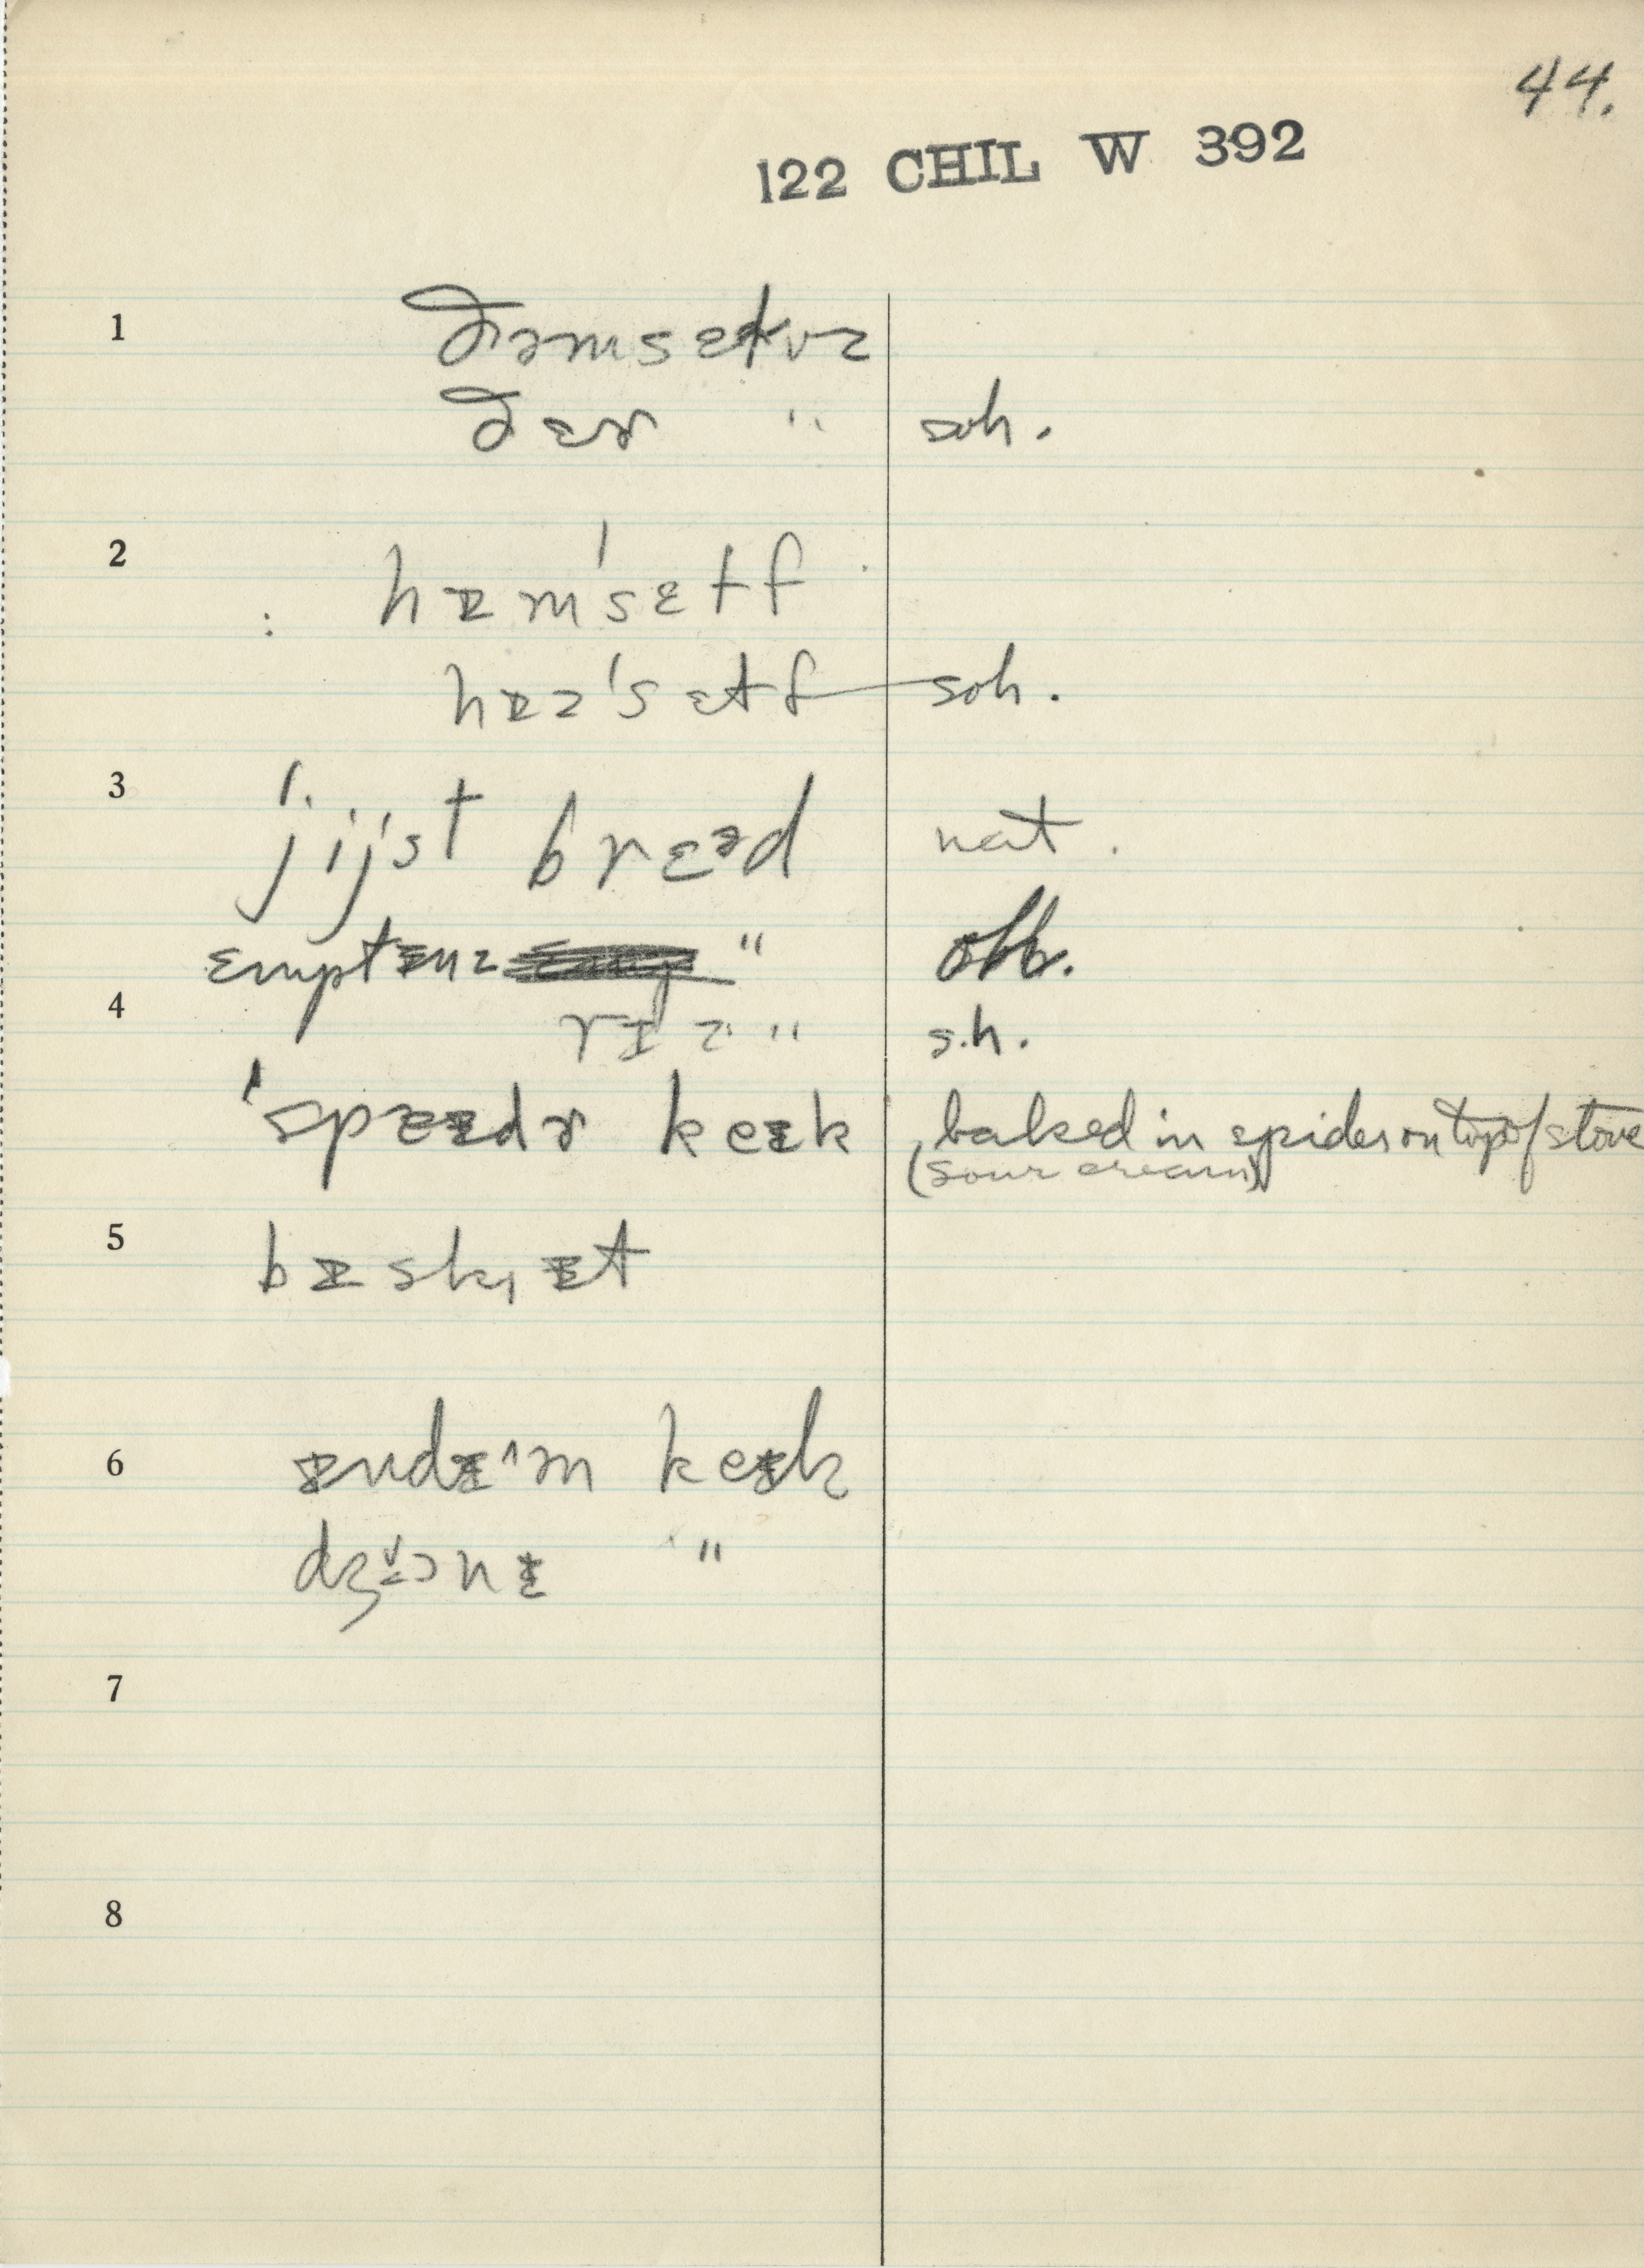 44.
122 CHIL W 392
1 ðəmsɛlvz
ðɛɚ " soh.
2 hɪm'sɛlf
hɪz'sɛlf soh.
3 'jijst brɛəd nat.
ɛmptɪnz "
4 rɪz " s.h.
ˈspɐɪdɚ keɪk baked in spider on top of stove
(sour cream)
5 bɪskɪt
6 ɪndɪən keɪk
dʒɔnɪ "
7
8